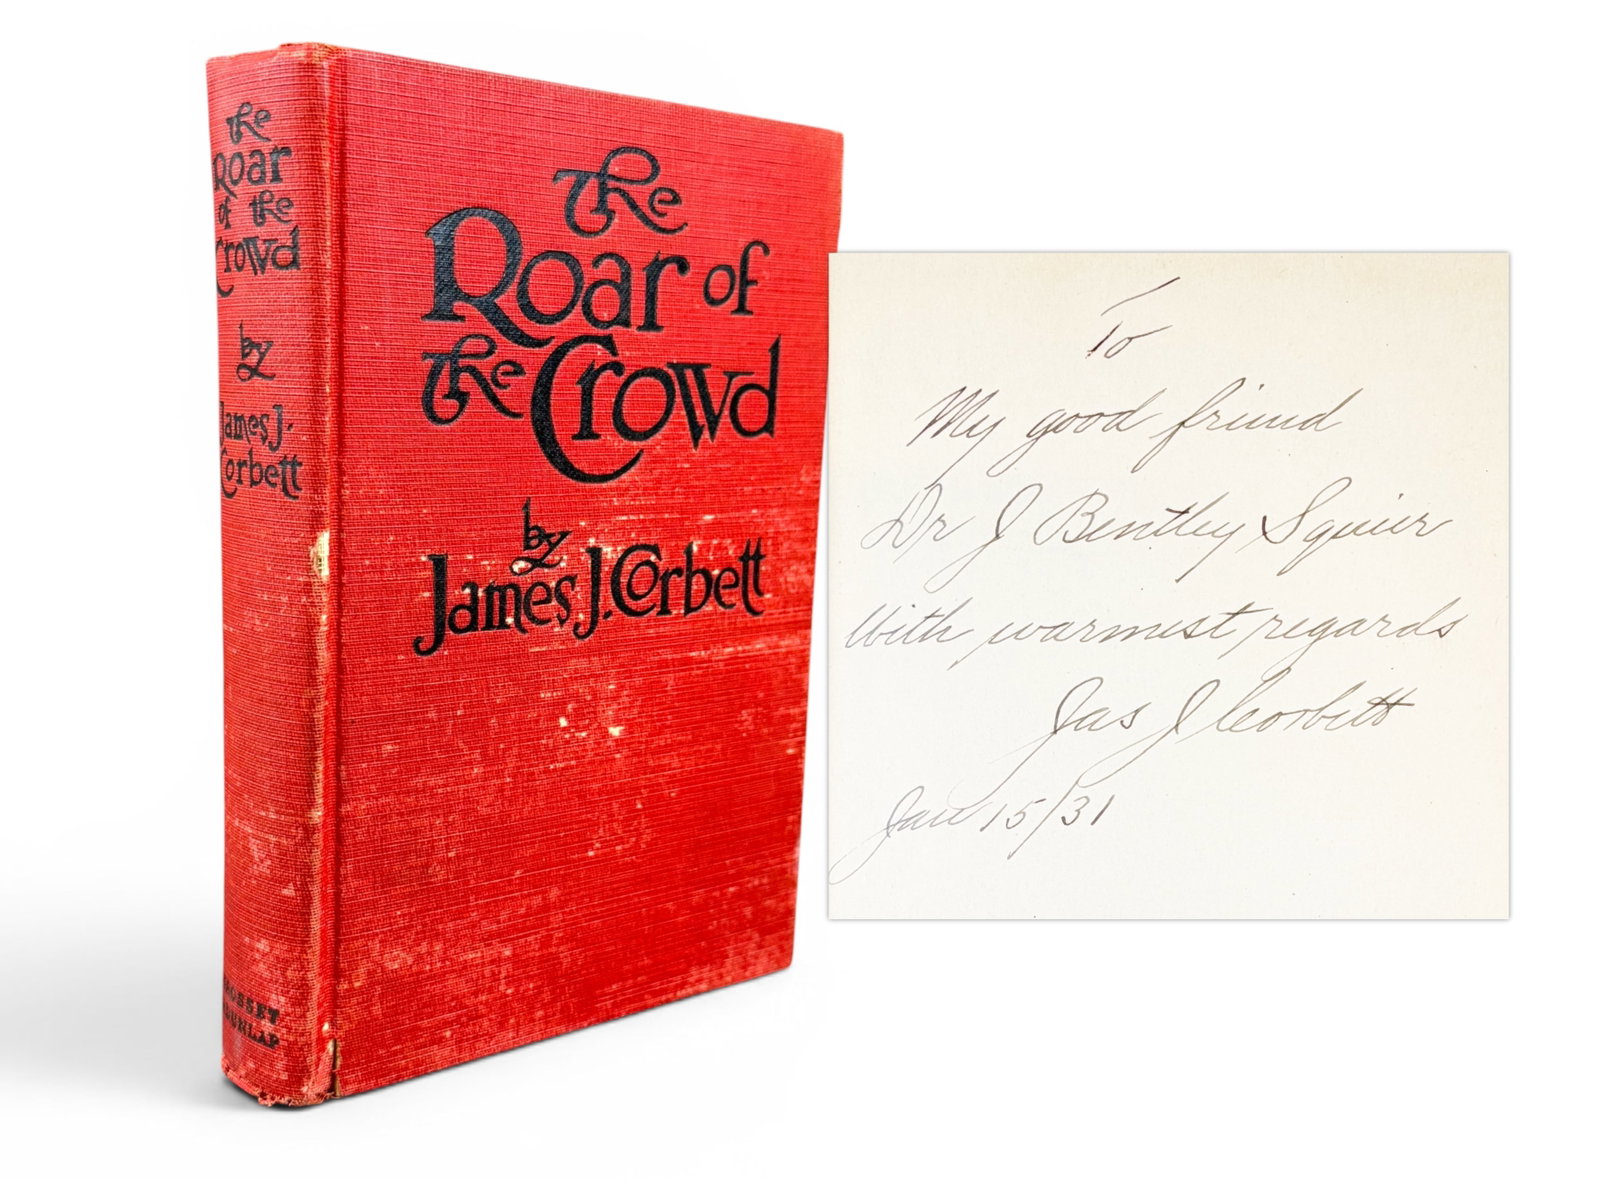 The
Roar
of the
Crowd
by
James J.
Corbett
GROSSET
& DUNLAP
The
Roar of
the Crowd
by
James J. Corbett
To
My good friend
Dr J Bentley Squier
With warmest regards
Jas J Corbett
Jan 15/31